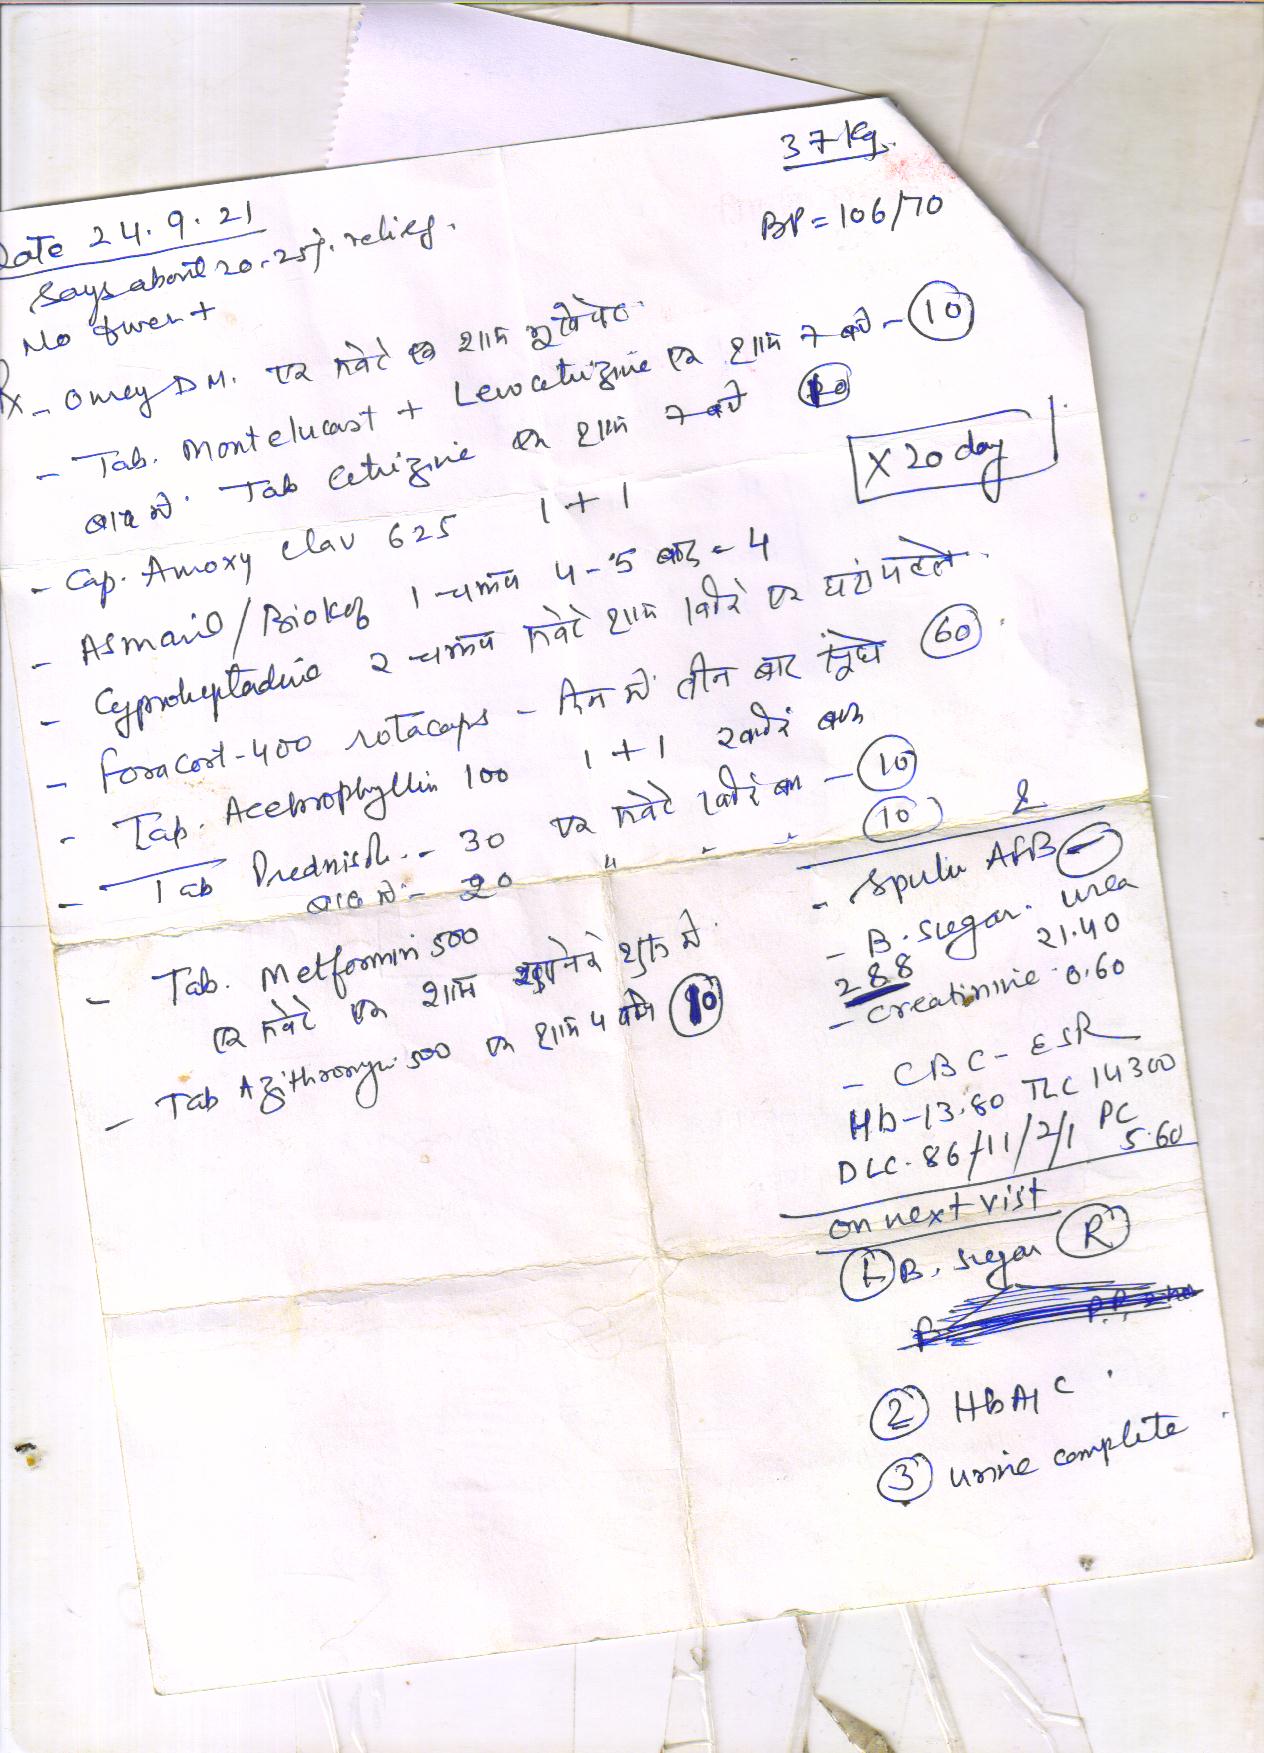 37 Kg.
Date 24.9.21
BP = 106/70
Says about 20-25%. relief.
No
Rx - Omey DM. एक सवेरे एक शाम भूखे पेट
- Tab. Montelucast + Levocetrizine एक शाम 7 बजे - 10
बाद में Tab Cetrizine एक शाम 7 बजे 10
X 20 day
- Cap. Amoxy Clav 625 1 + 1
- Asmanil / Biokof 1 चम्मच 4-5 बार = 4
- Cyproheptadine 2 चम्मच सवेरे शाम घंटा पहले
- Foracort-400 rotacaps - दिन में तीन बार सूंघे 60
- Tab. Acebrophyllin 100 1 + 1 बाद
- Tab Prednisol.. - 30 एक सवेरे - 10
बाद में - 20 " " " 10
- Tab. Metformin 500
एक सवेरे एक शाम खाने के शुरू में
- Tab Azithromycin 500 एक शाम 4 बजे 10
- AFB -
- B. sugar. urea
288 21.40
- Creatinine 0.60
- CBC - ESR
Hb-13.80 TLC 14300
DLC. 86/11/2/1 PC
5.60
on next visit
1 B. sugar R
2 HbA1C
3 urine complete